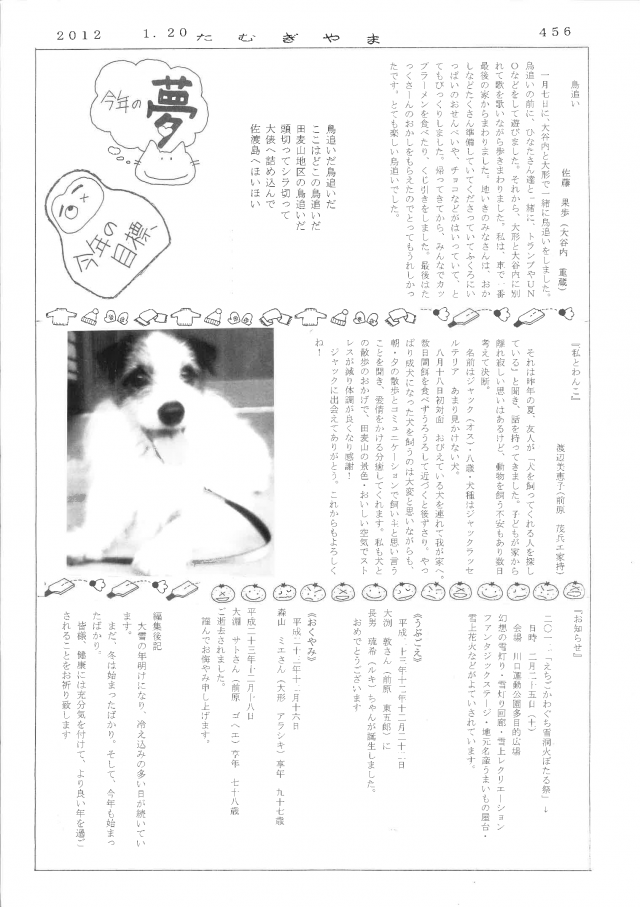 2012 1.20 たむぎやま 456
鳥追い
佐藤 果歩(大谷内 重蔵)
一月七日に、大谷内と大形で一緒に鳥追いをしました。
鳥追いの前に、ひなたさん達と一緒に、トランプやUN
Oなどをして遊びました。それから、大形と大谷内に別
れて歌を歌いながら歩きまわりました。私は、車で一番
最後の家からまわりました。地いきのみなさんは、おか
しなどたくさん準備していてくださっていてふくろにい
っぱいのおせんべいや、チョコなどがはいっていて、と
てもびっくりしました。帰ってきてから、みんなでカッ
プラーメンを食べたり、くじ引きをしました。最後はた
っくさーんのおかしをもらえたのでとってもうれしかっ
たです。とても楽しい鳥追いでした。
鳥追いだ鳥追いだ
ここはどこの鳥追いだ
田麦山地区の鳥追いだ
頭切ってシラ切って
大俵へ詰め込んで
佐渡島へほいほい
今年の夢
今年の目標!
『私とわんこ』
渡辺美恵子(前原 茂兵エ家持)
それは昨年の夏、友人が「犬を飼ってくれる人を探し
ている」と聞き、話を持ってきました。子どもが家から
離れ寂しい思いはあるけど、動物を飼う不安もあり数日
考えて決断。
名前はジャック(オス)・八歳・犬種はジャックラッセ
ルテリア あまり見かけない犬。
八月十八日初対面 おびえている犬を連れて我が家へ。
数日間餌を食べずうろうろして近づくと後ずさり、やっ
ぱり成犬になった犬を飼うのは大変と思いながらも、
朝・夕の散歩とコミュニケーションで飼い主と思い言う
ことを聞き、愛情をかける分癒してくれます。私も犬と
の散歩のおかげで、田麦山の景色・おいしい空気でスト
レスが減り体調が良くなり感謝!
ジャックに出会えてありがとう。これからもよろしく
ね!
『お知らせ』
えちごかわぐち雪洞火ぼたる祭」
日時 二月二十五日(土)
会場 川口運動公園多目的広場
幻想の雪灯り・雪灯り回廊・雪上レクリエーション
ファンタジックステージ・地元名産うまいもの屋台・
雪上花火などがよていされています。
《うぶごえ》
平成二十三年十二月二十二日
大渕 敦さん(前原 東五郎)に
長男 琉希(ルキ)ちゃんが誕生しました。
おめでとうございます
《おくやみ》
平成二十三年十二月十六日
森山 ミエさん(大形 アラシキ)享年 九十七歳
平成二十三年十二月十八日
大淵 サトさん(前原 ゴ(エ)享年 七十八歳
ご逝去されました。
謹んでお悔やみ申し上げます。
編集後記
大雪の年明けになり、冷え込みの多い日が続いてい
ます。
まだ、冬は始まったばかり。そして、今年も始まっ
たばかり。
皆様、健康には充分気を付けて、より良い年を過ご
されることをお祈り致します